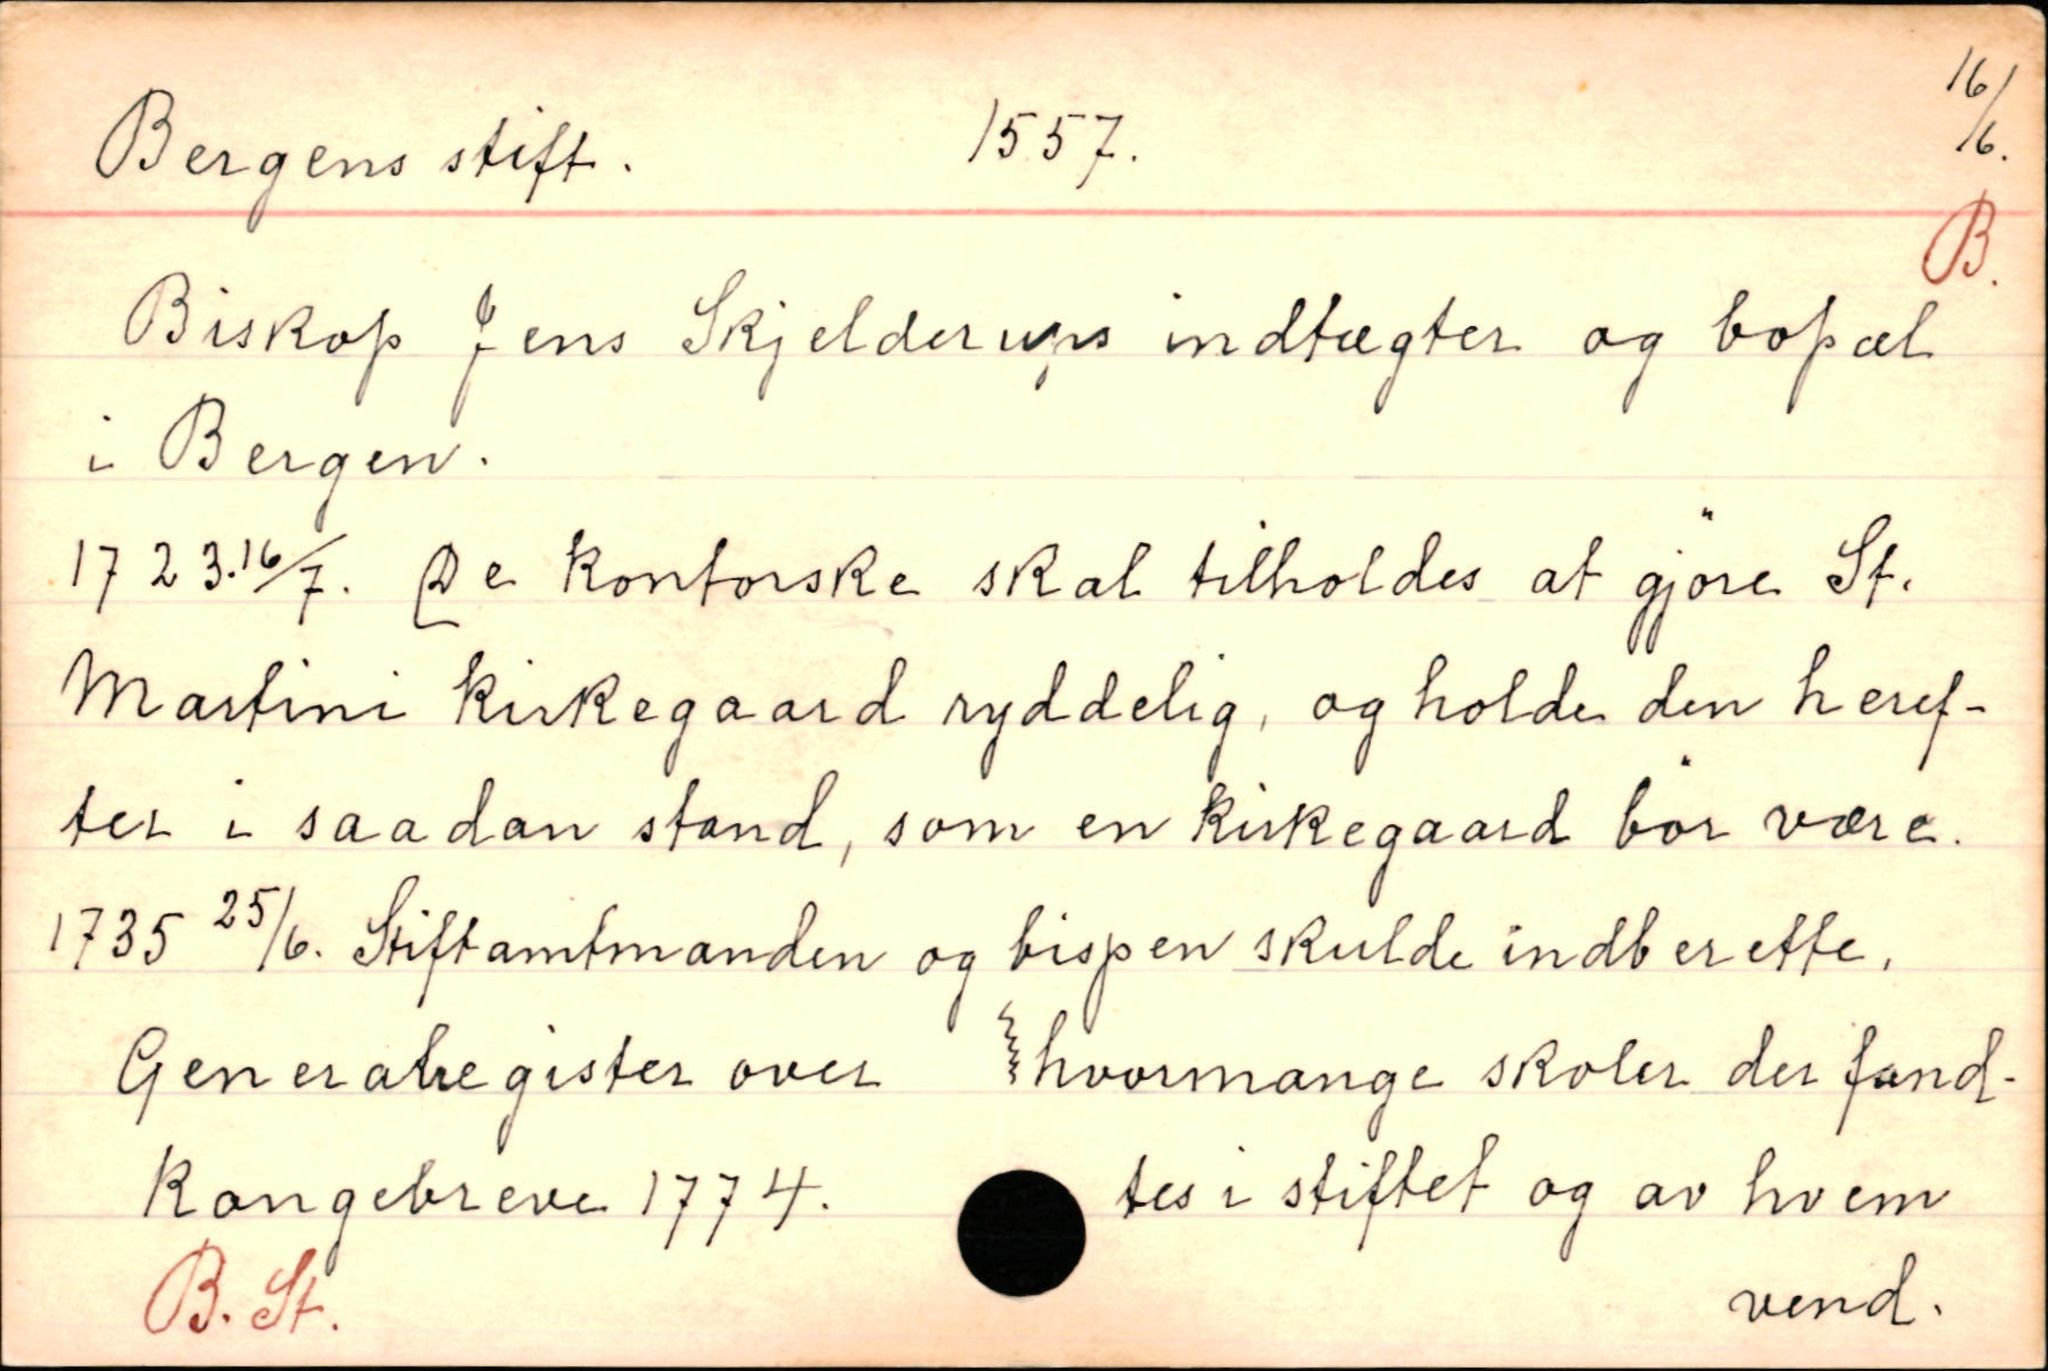 Bergens stift. 1557. 16/6.
B.
Biskop Jens Skjelderups indtægter og bopæl
i Bergen.
1723.16/7. De kontorske skal tilholdes at gjöre St.
Martini kirkegaard ryddelig, og holde den heref-
ter i saadan stand, som en kirkegaard bör være.
1735 25/6. Stiftamtmanden og bispen skulde indberette,
Generalregister over hvormange skoler der fand-
Kongebreve 1774. tes i stiftet og av hvem
B. St. vend.